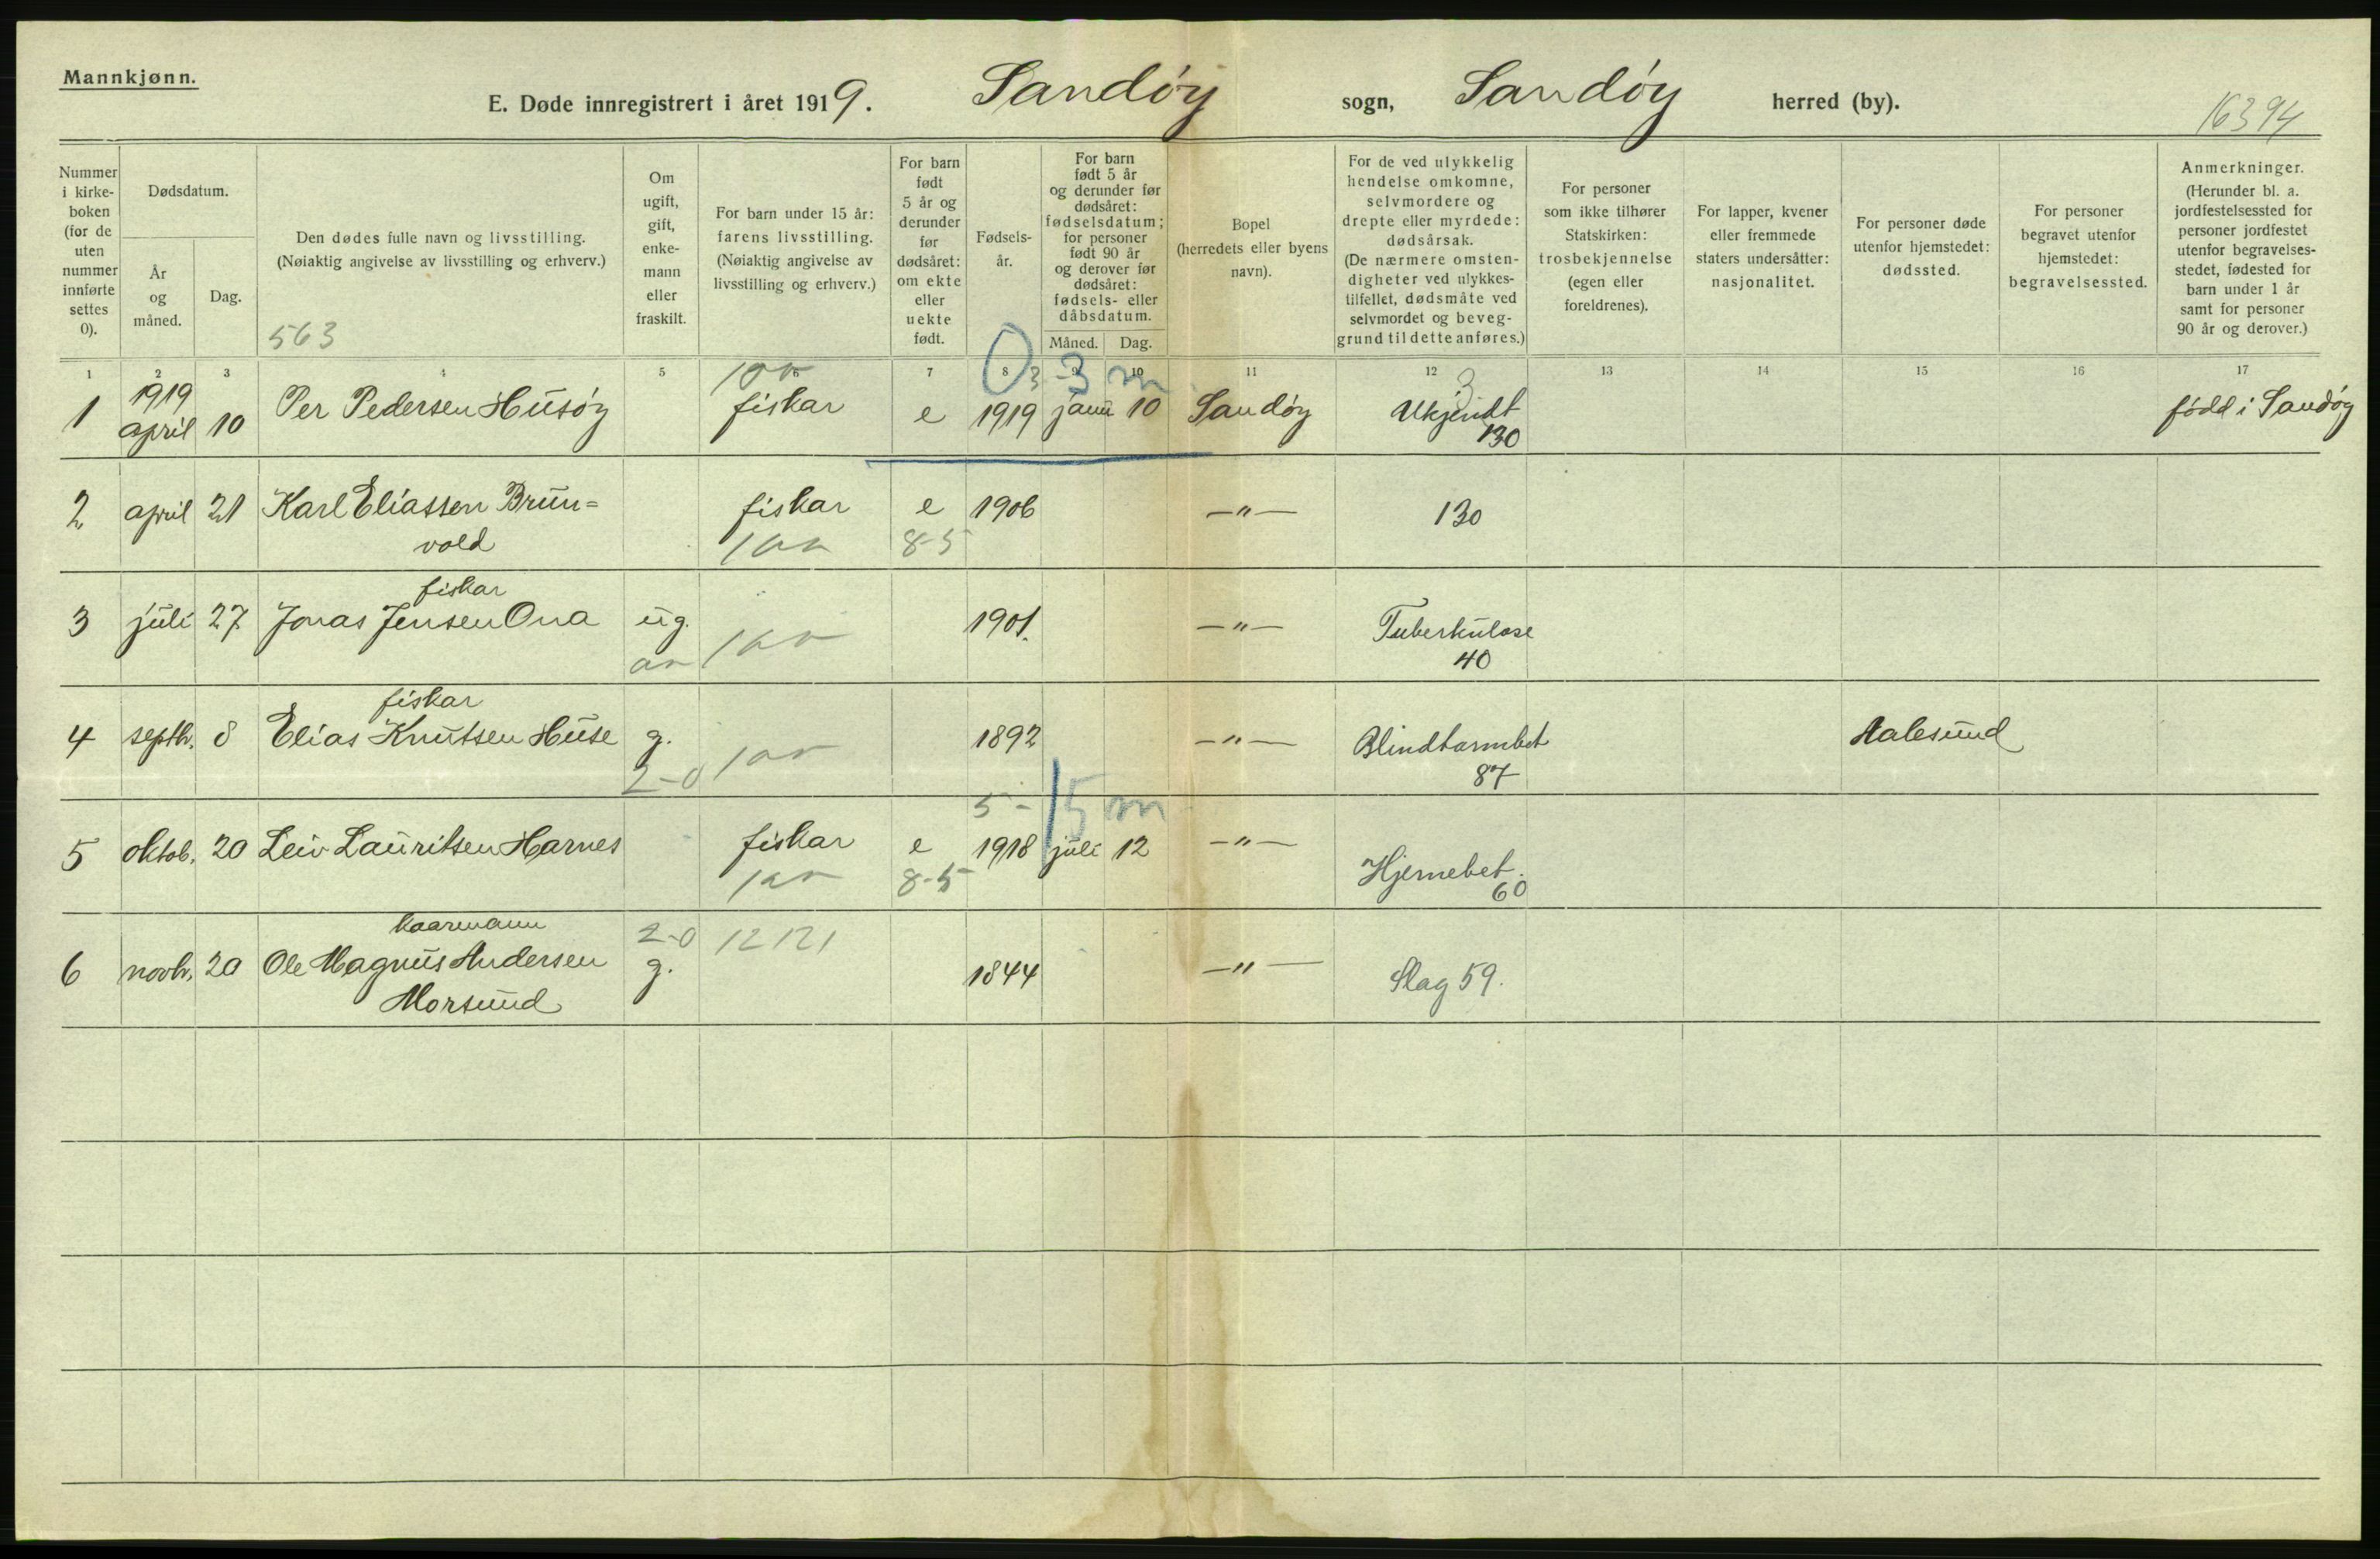 Mannkjønn.
E. Døde innregistrert i året 1919. Sandøy sogn, Sandøy herred (by).
16394
Nummer i kirke-boken (for de uten nummer innførte settes 0).
Dødsdatum.
År og måned.
Dag.
Den dødes fulle navn og livsstilling.
(Nøiaktig angivelse av livsstilling og erhverv.)
563
Om ugift, gift, enke-mann eller fraskilt.
For barn under 15 år: farens livsstilling. (Nøiaktig angivelse av livsstilling og erhverv.)
For barn født 5 år og derunder før dødsåret: om ekte eller uekte født.
Fødsels-år.
For barn født 5 år og derunder før dødsåret: fødselsdatum; for personer født 90 år og derover før dødsåret: fødsels- eller dåbsdatum.
Måned. Dag.
Bopel (herredets eller byens navn).
For de ved ulykkelig hendelse omkomne, selvmordere og drepte eller myrdede: dødsårsak. (De nærmere omsten-digheter ved ulykkes-tilfellet, dødsmåte ved selvmordet og beveg-grund til dette anføres.)
For personer som ikke tilhører Statskirken: trosbekjennelse (egen eller foreldrenes).
For lapper, kvener eller fremmede staters undersåtter: nasjonalitet.
For personer døde utenfor hjemstedet: dødssted.
For personer begravet utenfor hjemstedet: begravelsessted.
Anmerkninger. (Herunder bl. a. jordfestelsessted for personer jordfestet utenfor begravelses-stedet, fødested for barn under 1 år samt for personer 90 år og derover.)
1 2 3 4 5 6 7 8 9 10 11 12 13 14 15 16 17
0 3 3 m 3
1 1919 april 10 Per Pedersen Husøy fiskar e 1919 janu 10 Sandøy Ukjendt 130 født i Sandøy
2 april 21 Karl Eliassen Brun=
vold fiskar e 1906 —"— 130
8-5
fiskar
3 juli 27 Jonas Jensen Ona ug. 1901. —"— Tuberkulose
40
fiskar
4 septb. 8 Elias Knutsen Huse g. 1892 —"— Blindtarmbet Aalesund
2-0 87
5- 15 m
5 oktob. 20 Leiv Lauritsen Harnes fiskar e 1918 juli 12 —"— Hjernebet.
8-5 60
kaarmann 2-0 12121
6 novb. 20 Ole Magnus Andersen g. 1844 —"— Slag 59.
Morsund